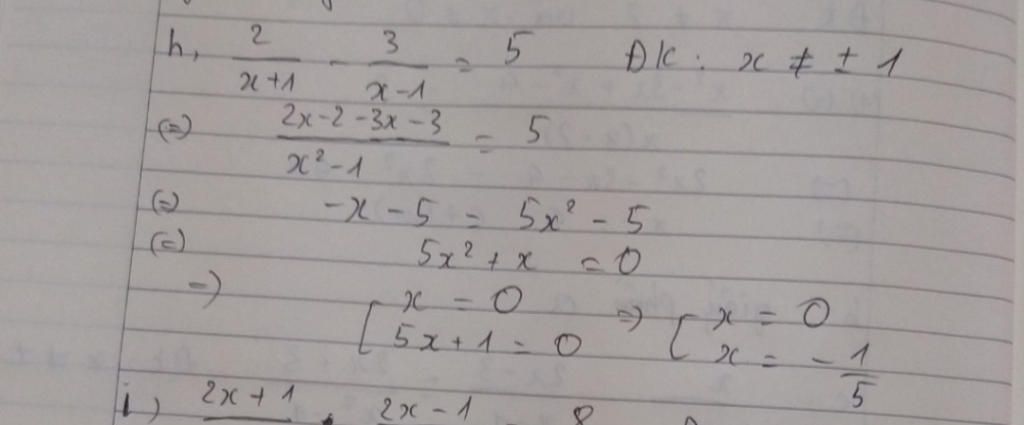 h, 2/(x+1) - 3/(x-1) = 5 ĐK: x ≠ ± 1
(=) (2x-2-3x-3)/(x²-1) = 5
(=) -x-5 = 5x²-5
(=) 5x²+x = 0
=) [ x = 0 => [ x = 0
5x+1 = 0 x = -1/5
i) 2x+1 2x-1 8